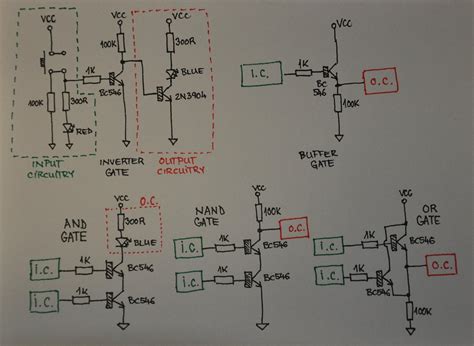 VCC
VCC
VCC
VCC
100K
300R
1K
BLUE
BC546
2N3904
100K
300R
RED
INPUT
CIRCUITRY
INVERTER
GATE
OUTPUT
CIRCUITRY
I.C.
1K
BC
546
O.C.
100K
BUFFER
GATE
AND
GATE
VCC
O.C.
300R
BLUE
I.C.
1K
BC546
I.C.
1K
BC546
NAND
GATE
VCC
100K
O.C.
I.C.
1K
BC546
I.C.
1K
BC546
OR
GATE
VCC
I.C.
1K
BC546
I.C.
1K
BC546
O.C.
100K